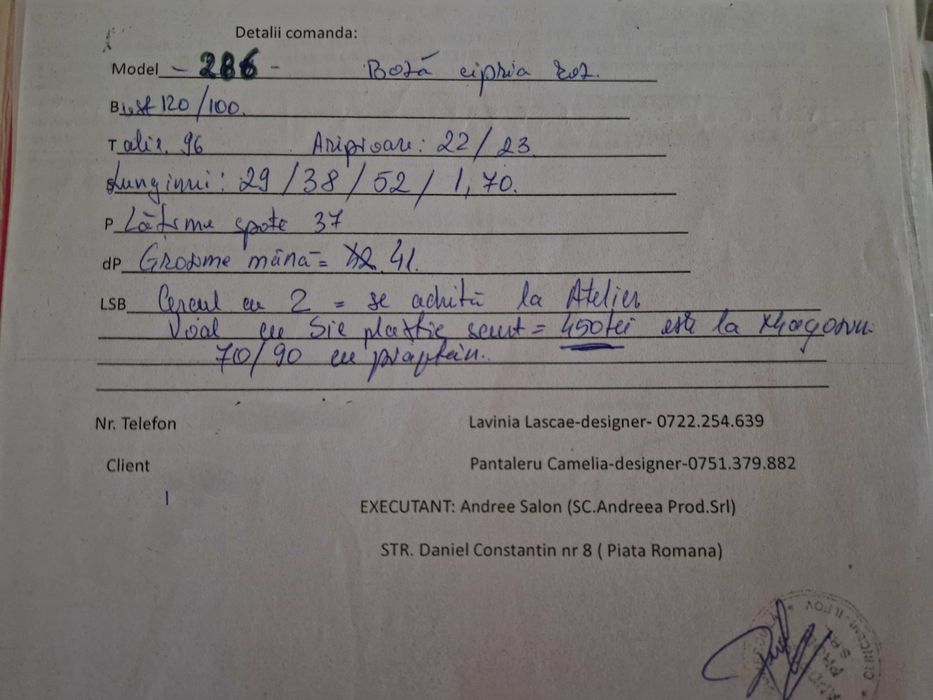 Detalii comanda:
Model - 286 - Bază cipria roz.
Bust 120/100.
Talie. 96 Aripioare: 22/23.
Lungimi: 29/38/52/1,70.
P Lățime spate 37
dP Grosime mână = 42 41.
LSB Cercul cu 2 = se achită la Atelier
Voal cu = 450 lei este la
70/90 cu
Nr. Telefon
Lavinia Lascae-designer- 0722.254.639
Client
Pantaleru Camelia-designer-0751.379.882
EXECUTANT: Andree Salon (SC.Andreea Prod.Srl)
STR. Daniel Constantin nr 8 ( Piata Romana)